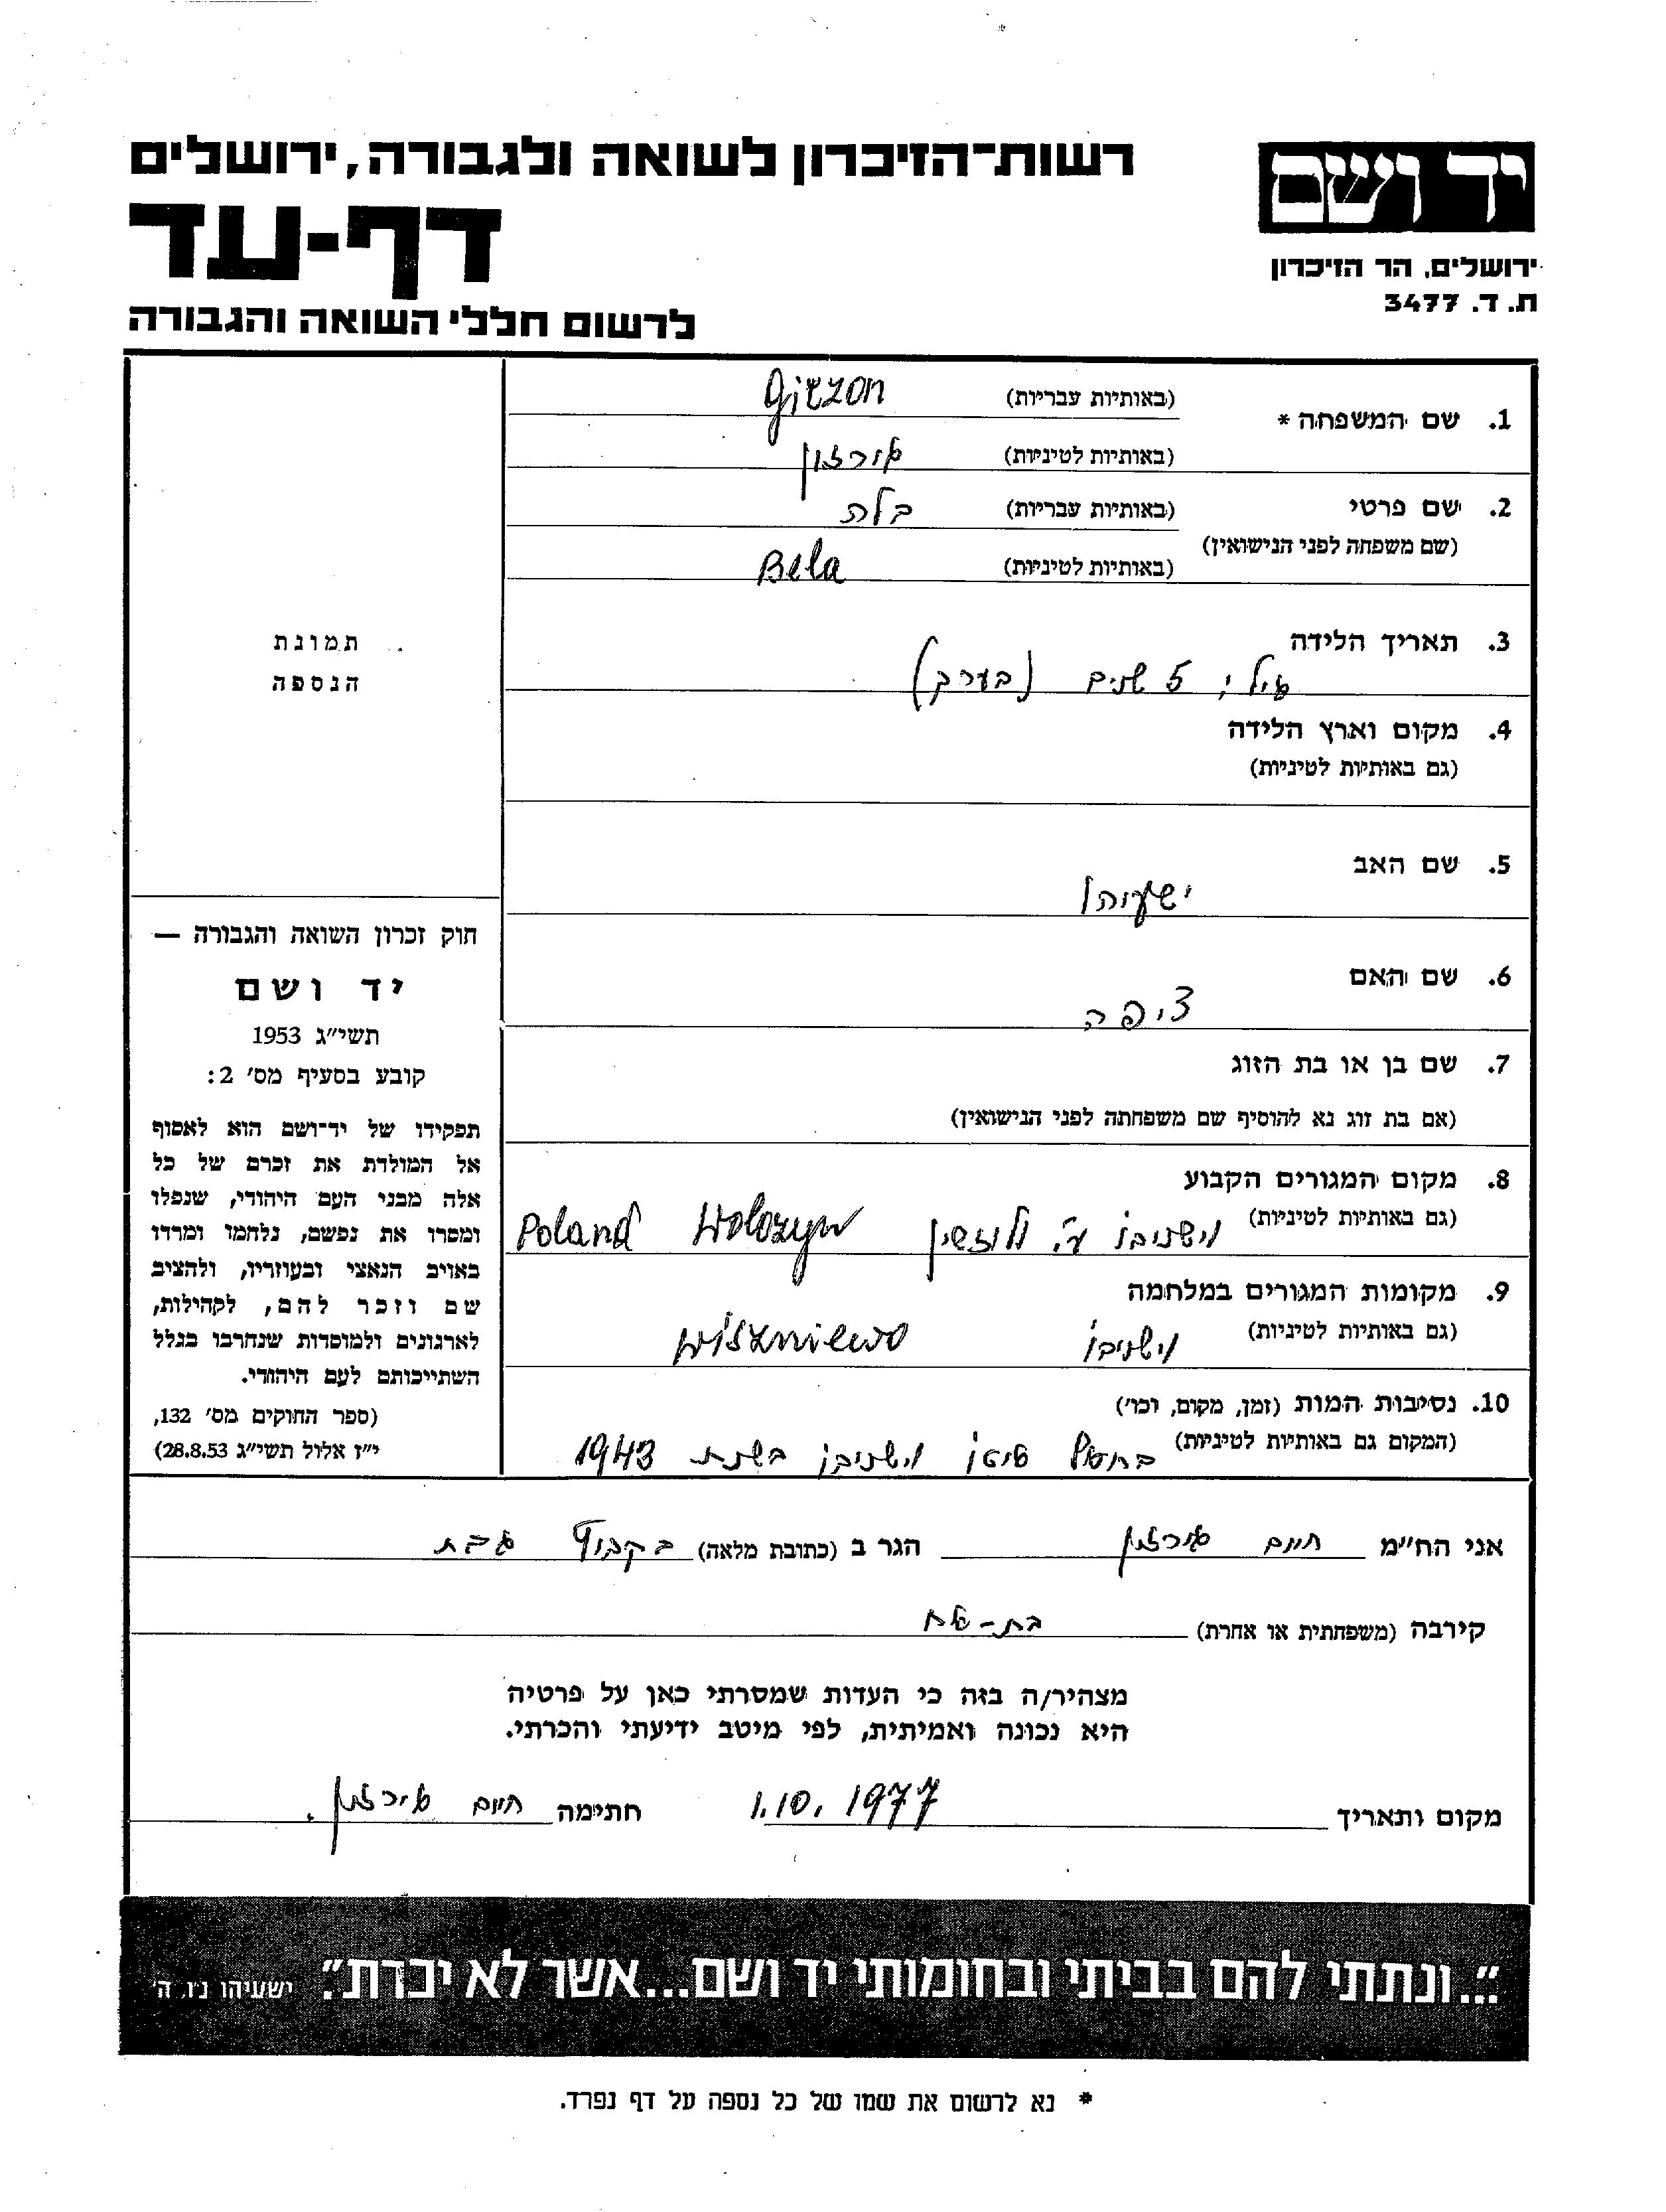 רשות-הזיכרון לשואה ולגבורה, ירושלים
דף-עד
לרשום חללי השואה והגבורה
יד ושם
ירושלים, הר הזיכרון
ת. ד. 3477
1. שם המשפחה * (באותיות עבריות) Girzon
(באותיות לטיניות) גירזון
2. שם פרטי (באותיות עבריות) בלה
(שם משפחה לפני הנישואין) (באותיות לטיניות) Bela
3. תאריך הלידה
גיל: 5 שנים (בערך)
4. מקום וארץ הלידה
(גם באותיות לטיניות)
5. שם האב
ישעיהו
6. שם האם
ציפה
7. שם בן או בת הזוג
(אם בת זוג נא להוסיף שם משפחתה לפני הנישואין)
8. מקום המגורים הקבוע
(גם באותיות לטיניות) וישניבו ע"י ולוז'ין Wolozyn Poland
9. מקומות המגורים במלחמה
(גם באותיות לטיניות) וישניבו Wiszniewo
10. נסיבות המות (זמן, מקום, וכו')
(המקום גם באותיות לטיניות) וישניבו בשנת 1943
תמונת
הנספה
חוק זכרון השואה והגבורה —
יד ושם
תשי"ג 1953
קובע בסעיף מס' 2:
תפקידו של יד-ושם הוא לאסוף
אל המולדת את זכרם של כל
אלה מבני העם היהודי, שנפלו
ומסרו את נפשם, נלחמו ומרדו
באויב הנאצי ובעוזריו, ולהציב
שם וזכר להם, לקהילות,
לארגונים ולמוסדות שנחרבו בגלל
השתייכותם לעם היהודי.
(ספר החוקים מס' 132,
י"ז אלול תשי"ג 28.8.53)
אני הח"מ חיים גירזון הגר ב (כתובת מלאה) בקבוץ גבת
קירבה (משפחתית או אחרת) בת-אח
מצהיר/ה בזה כי העדות שמסרתי כאן על פרטיה
היא נכונה ואמיתית, לפי מיטב ידיעתי והכרתי.
מקום ותאריך 1.10.1977 חתימה חיים גירזון.
"...ונתתי להם בביתי ובחומותי יד ושם...אשר לא יכרת". ישעיהו נ"ו, ה'
* נא לרשום את שמו של כל נספה על דף נפרד.